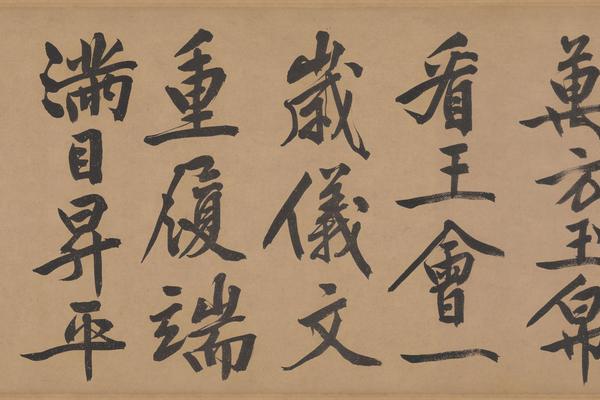 萬方玉帛
看王會一
歲儀文
重履端
滿目昇平